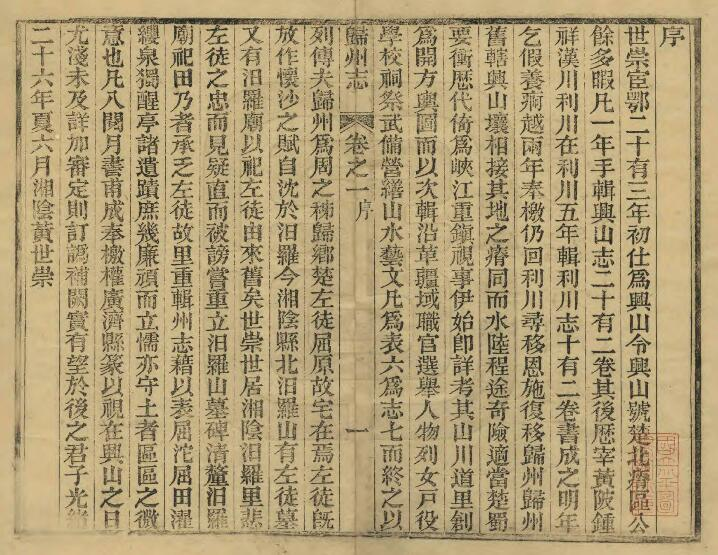 序
世崇宦鄂二十有三年初仕爲興山令興山號楚北瘠區公
餘多暇凡一年手輯興山志二十有二卷其後歷宰黃陂鍾
祥漢川利川在利川五年輯利川志十有二卷書成之明年
乞假養痾越兩年奉檄仍回利川尋移恩施復移歸州歸州
舊轄興山壤相接其地之瘠同而水陸程途奇險適當楚蜀
要衝歷代倚爲峽江重鎮視事伊始卽詳考其山川道里創
爲開方輿圖而以次輯沿革疆域職官選舉人物列女戶役
學校祠祭武備營繕山水藝文凡爲表六爲志七而終之以
歸州志 卷之一序 一
列傳夫歸州爲周之秭歸鄉楚左徒屈原故宅在焉左徒旣
放作懷沙之賦自沈於汨羅今湘陰縣北汨羅山有左徒墓
又有汨羅廟以祀左徒由來舊矣世崇世居湘陰汨羅里悲
左徒之忠而見疑直而被謗嘗重立汨羅山墓碑清釐汨羅
廟祀田乃者承乏左徒故里重輯州志藉以表屈沱屈田濯
纓泉獨醒亭諸遺蹟庶幾廉頑而立懦亦守土者區區之微
意也凡八閱月書甫成奉檄權廣濟縣篆以視在興山之日
尤淺未及詳加審定則訂譌補闕實有望於後之君子光緒
二十六年夏六月湘陰黃世崇